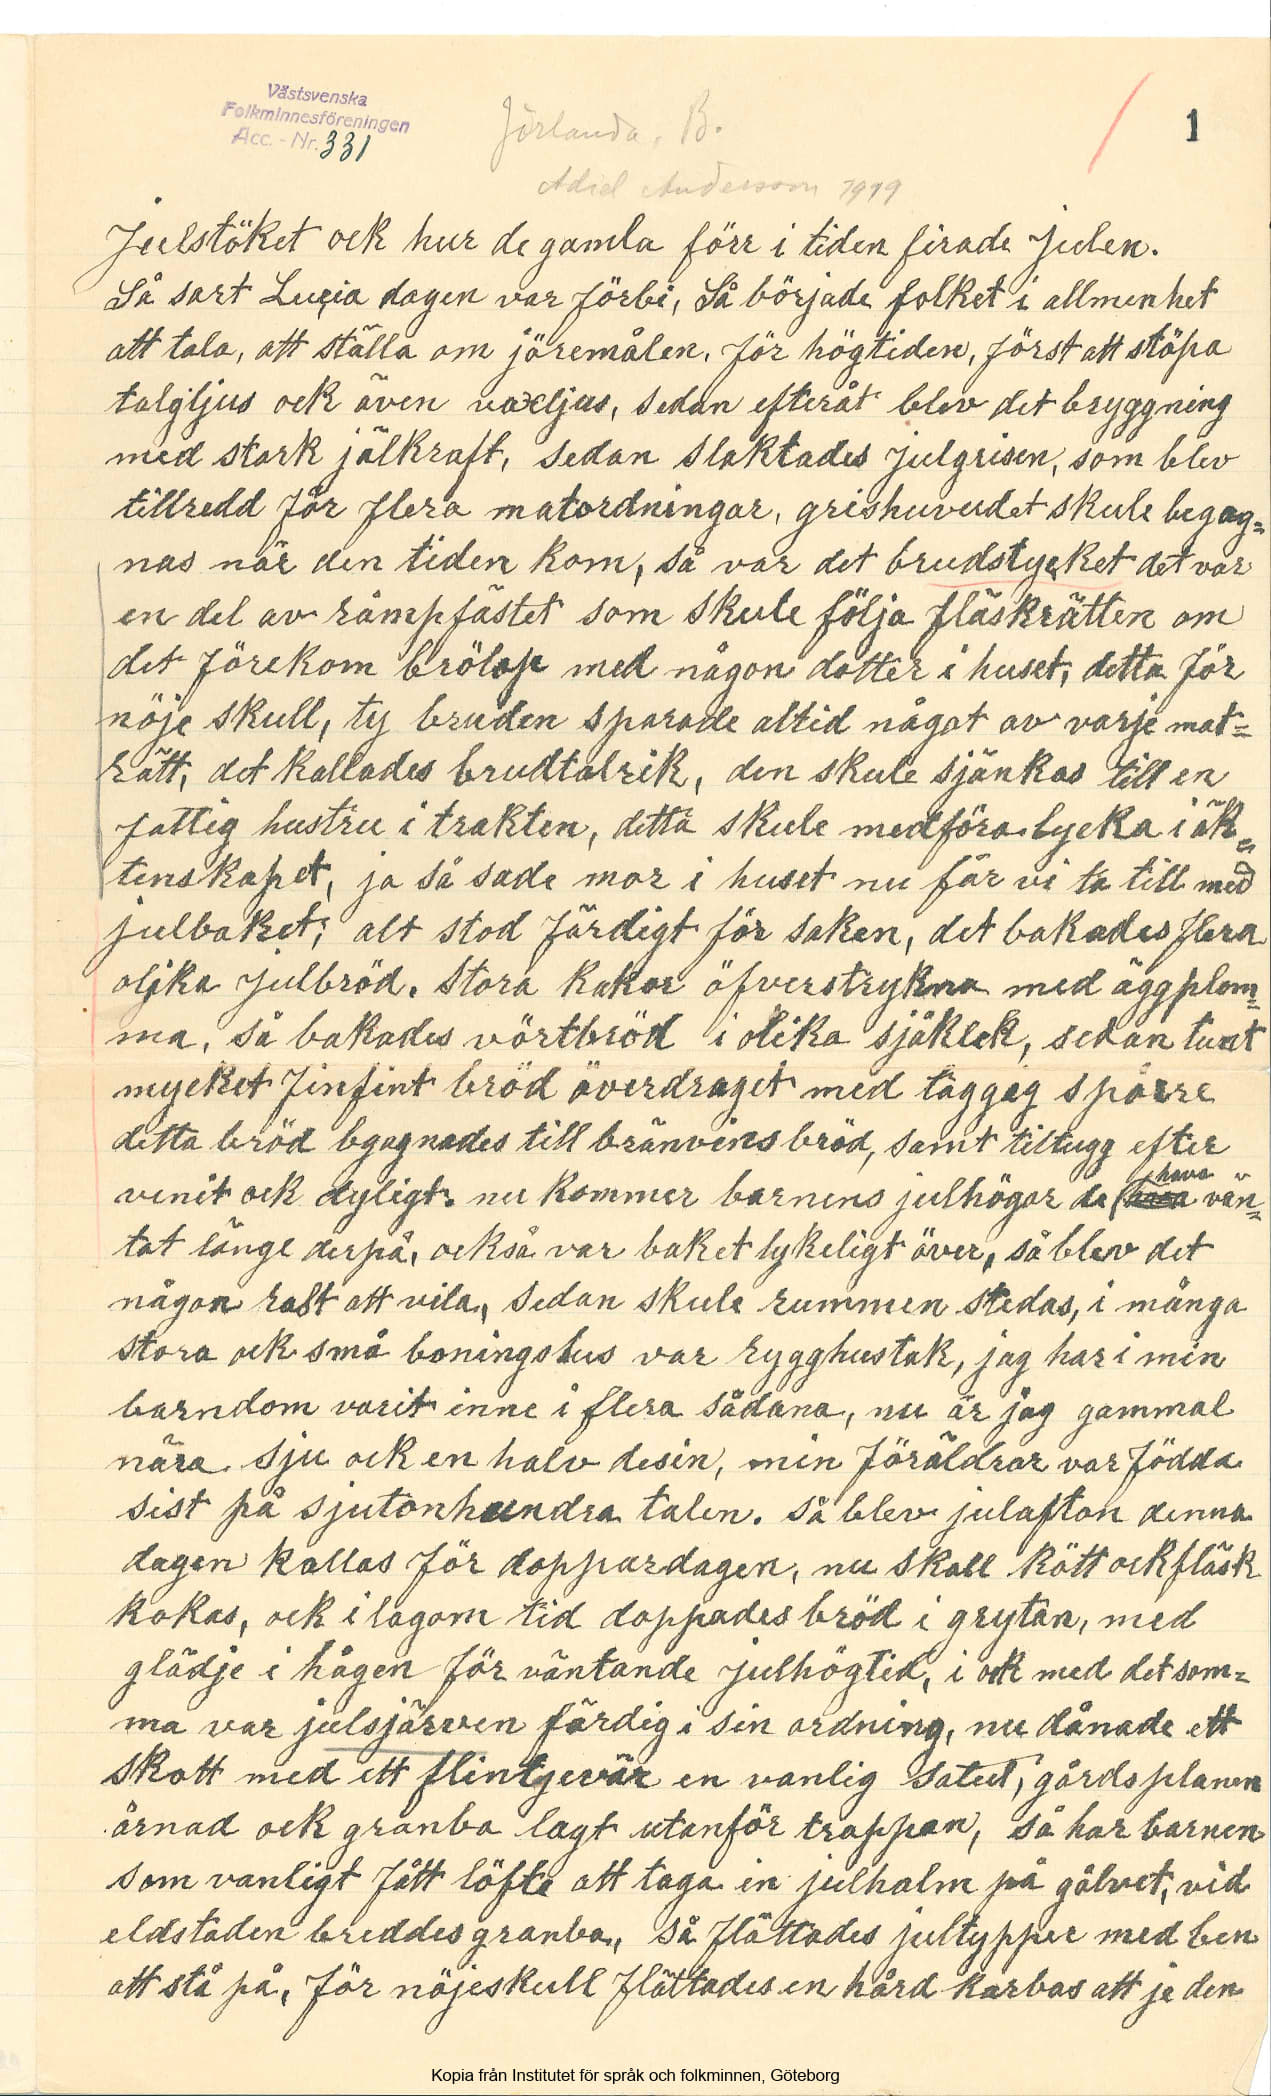 Västsvenska
Folkminnesföreningen
Acc. - Nr. 331
Jörlanda, B.
1
Adiel Andersson 1919
Julstöket ock hur de gamla förr i tiden firade Julen.
Så sart Lucia dagen var förbi, Så började folket i allmenhet
att tala, att ställa om föremålen, för högtiden, först att stöpa
talgljus ock även vaxljus, sedan efteråt blev det bryggning
med stark jälkraft, sedan slaktades julgrisen, som blev
tillredd för flera matordningar, grishuvudet skule begag=
nas när den tiden kom, så var det brudstycket det var
en del av rämpfästet som skule följa fläskrätten om
det förekom brölop med någon dotter i huset, detta för
nöje skull, ty bruden sparade altid något av varje mat=
rätt, det kallades brudtalrik, den skule sjänkas till en
fattig hustru i trakten, detta skule medföra lycka i äk=
tenskapet, ja så sade mor i huset nu får vi ta till med
julbaket; alt stod färdigt för saken, det bakades flera
olika julbröd. Stora kakor öfverstrykna med äggplom=
ma, så bakades vörtbröd i olika sjåklek, sedan tunt
mycket finfint bröd överdraget med taggag spårre
detta bröd bgagnades till bränvins bröd, samt tilltugg efter
vinit ock dyligt. nu kommer barnens julhögar de hava vän=
tat länge derpå, också var baket lykeligt över, så blev det
någon rast att vila, sedan skule rummen stedas, i många
stora ock små boningshus var rygghustak, jag har i min
barndom varit inne i flera sådana, nu är jag gammal
nära sju ock en halv desin, min föräldrar var födda
sist på sjutonhundra talen. så blev julafton denna
dagen kallas för doppardagen, nu skall kött ock fläsk
kokas, ock i lagom tid doppades bröd i grytan, med
glädje i hågen för väntande julhögtid, i ock med det sam=
ma var julsjärven färdig i sin ordning, nu dånade ett
skott med ett flintgevär en vanlig salut, gårdsplanen
årnad ock granba lagt utanför trappan, så har barnen
som vanligt fått löfte att taga in julhalm på gålvet, vid
eldstaden breddes granba, så flättades jultypper med ben
att stå på, för nöjeskull flättades en hård karbas att je den
Kopia från Institutet för språk och folkminnen, Göteborg